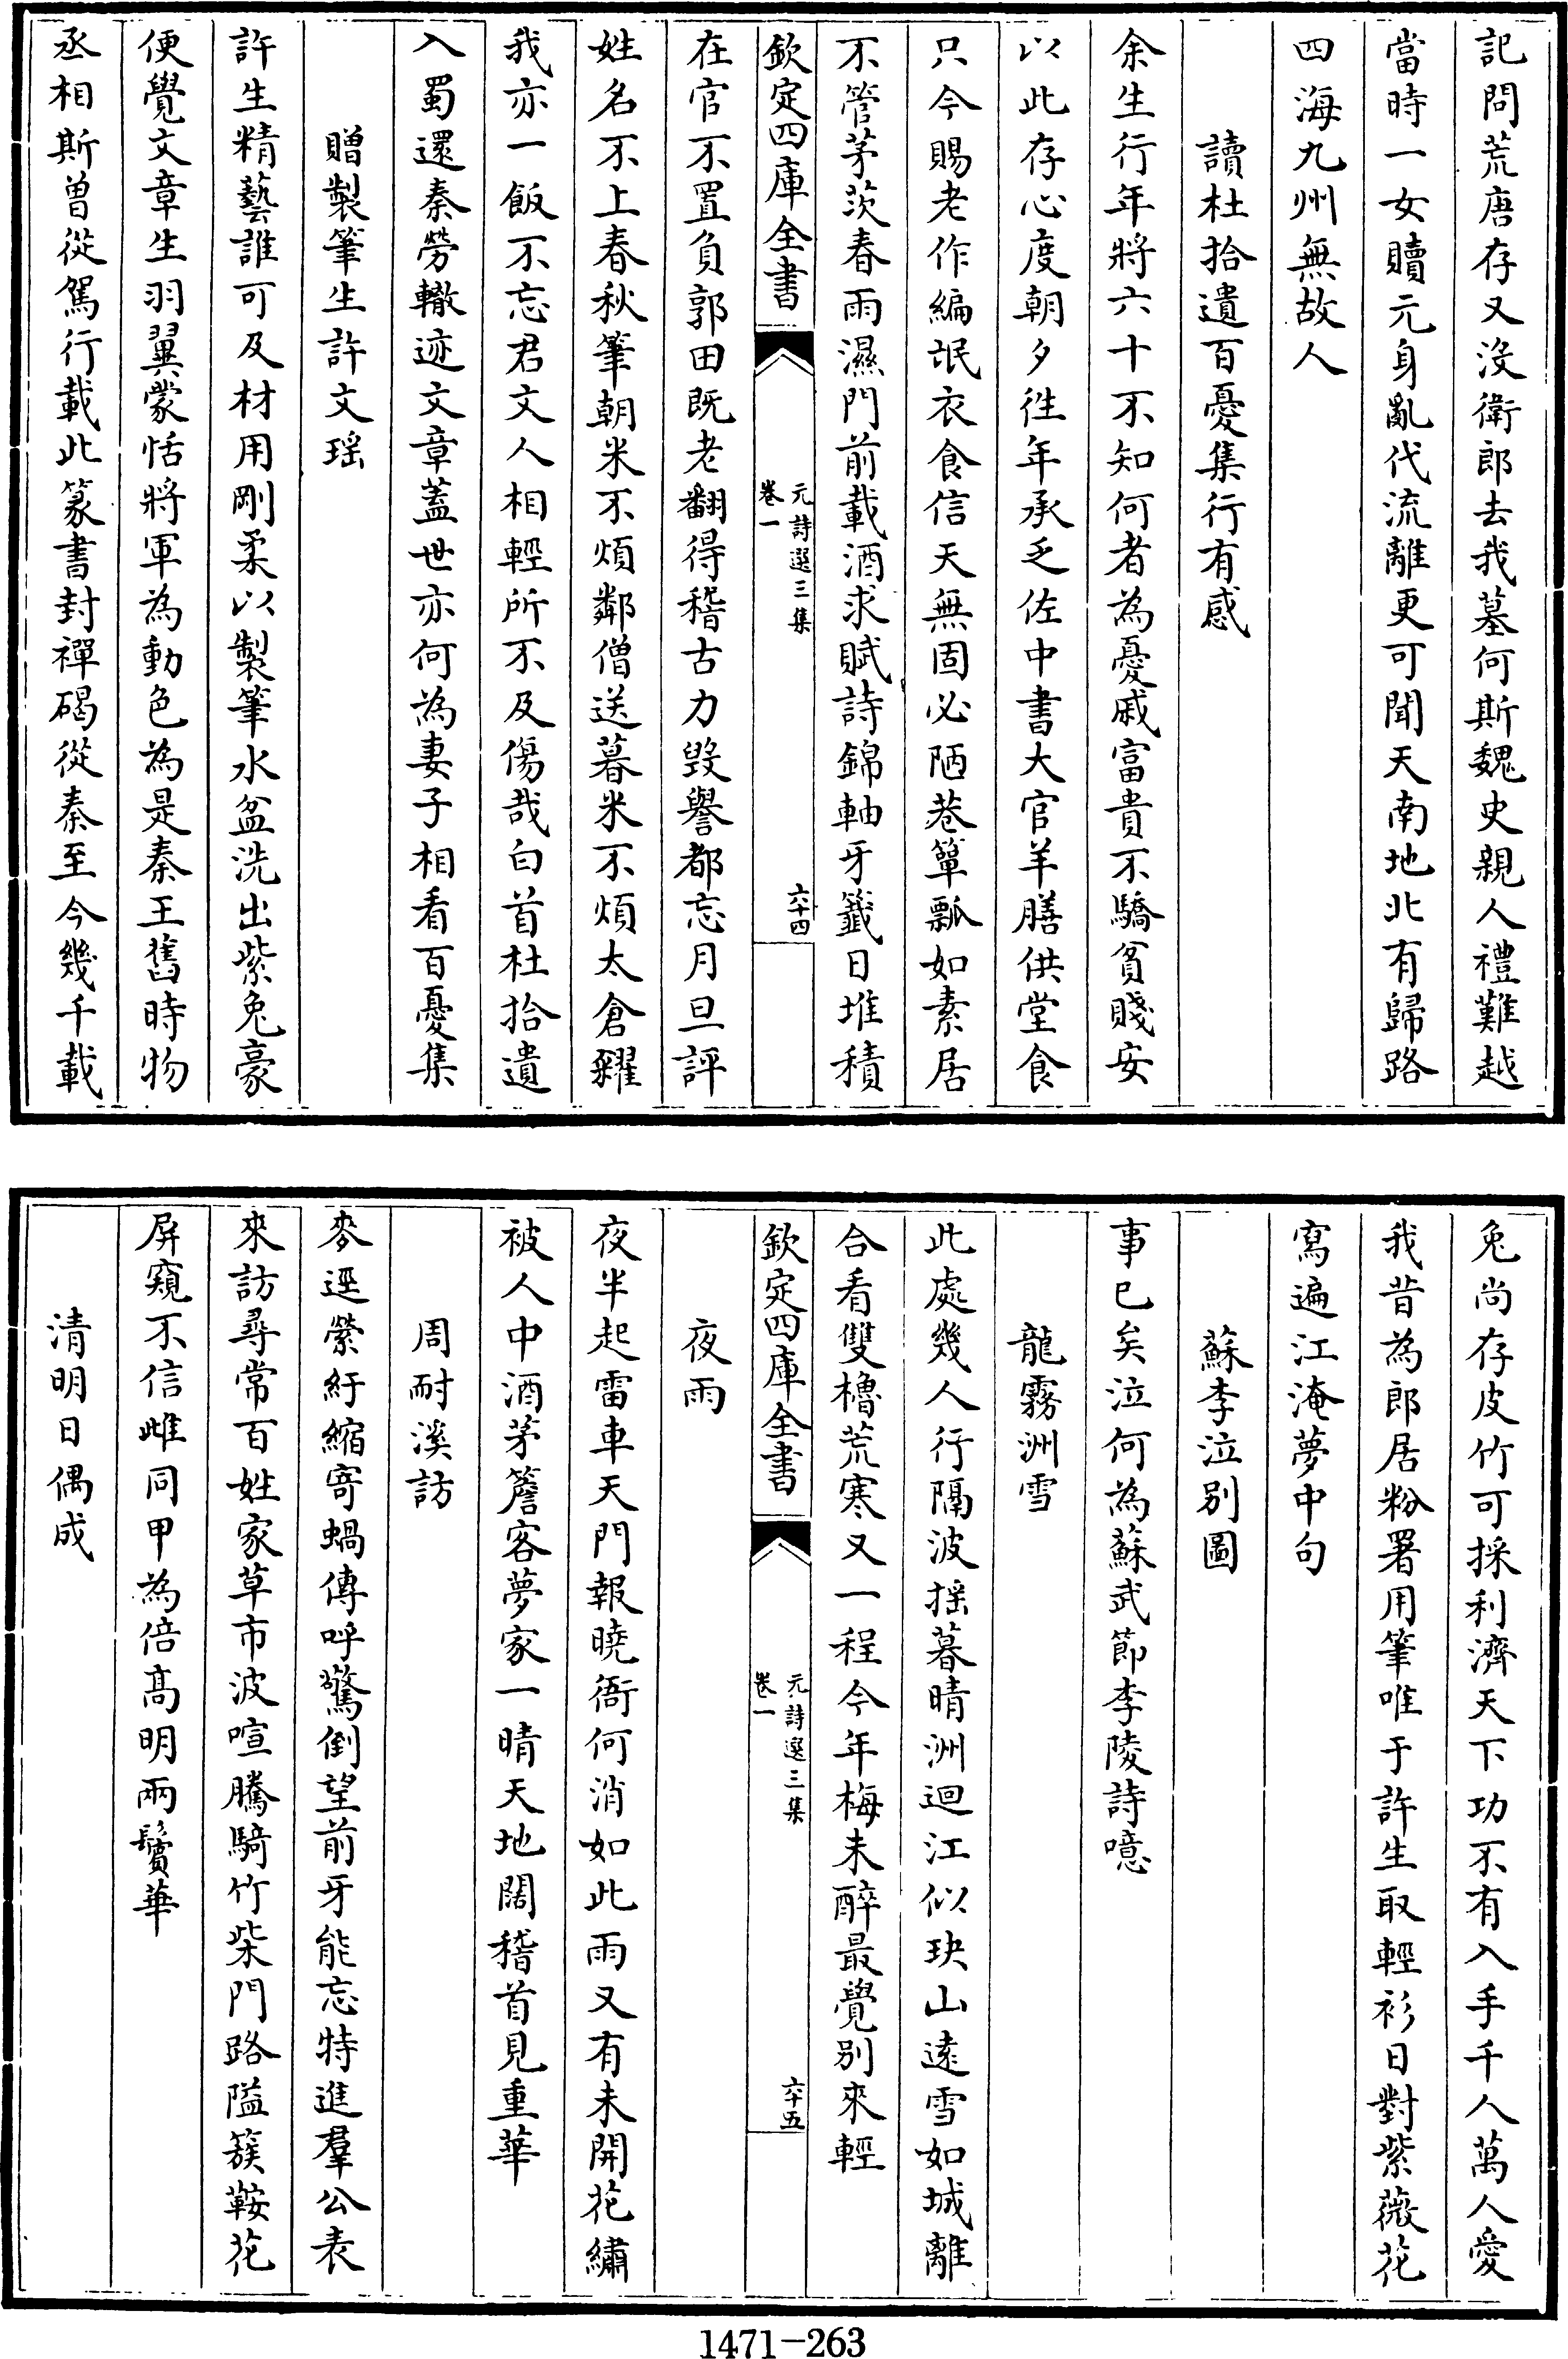 記問荒唐存又沒衛郎去我墓何斯魏史親人禮難越
當時一女贖元身亂代流離更可聞天南地北有歸路
四海九州無故人
讀杜拾遺百憂集行有感
余生行年將六十不知何者為憂戚富貴不驕貧賤安
以此存心度朝夕徃年承乏佐中書大官羊膳供堂食
只今賜老作編氓衣食信天無固必陋巷簞瓢如素居
不管茅茨春雨濕門前載酒求賦詩錦軸牙籤日堆積
欽定四庫全書
元詩選三集
卷一
六十四
在官不置負郭田既老翻得稽古力毀譽都忘月旦評
姓名不上春秋筆朝米不煩鄰僧送暮米不煩太倉糴
我亦一飯不忘君文人相輕所不及傷哉白首杜拾遺
入蜀還秦勞轍迹文章蓋世亦何為妻子相看百憂集
贈製筆生許文瑶
許生精藝誰可及材用剛柔以製筆水盆洗出紫兔豪
便覺文章生羽翼蒙恬將軍為動色為是秦王舊時物
丞相斯曾從駕行載此篆書封禪碣從秦至今幾千載
兔尚存皮竹可採利濟天下功不有入手千人萬人愛
我昔為郎居粉署用筆唯于許生取輕衫日對紫薇花
寫遍江淹夢中句
蘇李泣別圖
事已矣泣何為蘇武節李陵詩噫
龍霧洲雪
此處幾人行隔波揺暮晴洲迴江似玦山遠雪如城離
合看雙櫓荒寒又一程今年梅未醉最覺別來輕
欽定四庫全書
元詩選三集
卷一
六十五
夜雨
夜半起雷車天門報曉衙何消如此雨又有未開花繡
被人中酒茅簷客夢家一晴天地闊稽首見重華
周耐溪訪
麥逕縈紆縮寄蝸傳呼驚倒望前牙能忘特進羣公表
來訪尋常百姓家草市波喧騰騎竹柴門路隘簇鞍花
屏窺不信雌同甲為倍高明兩鬢華
清明日偶成
1471-263